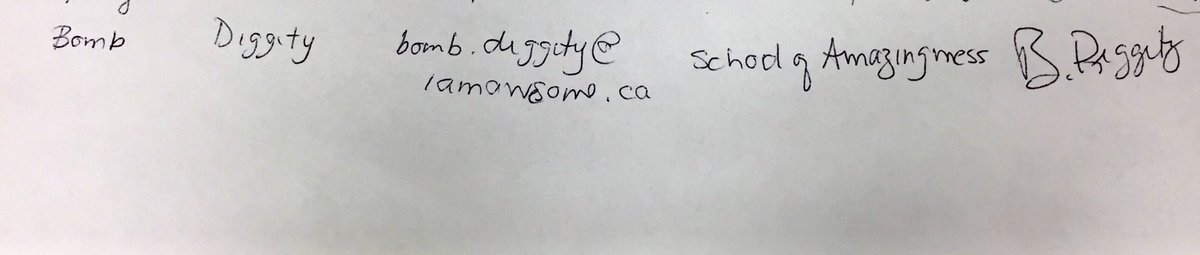 Bomb Diggity bomb.diggity@ School of Amazingness B. Diggity
iamawsome.ca